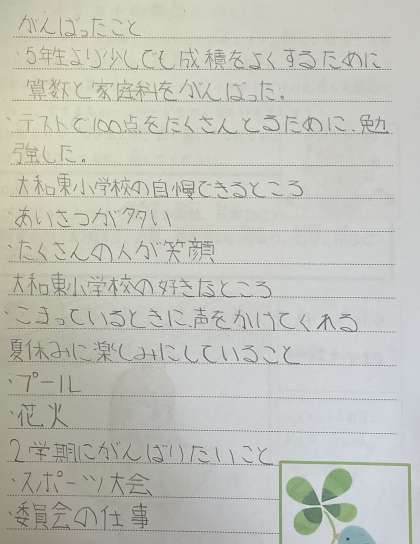 がんばったこと
・5年生より少しでも成積をよくするために
算数と家庭科をがんばった。
・テストで100点をたくさんとるために、勉
強した。
大和東小学校の自慢できるところ
・あいさつが多い
・たくさんの人が笑顔
大和東小学校の好きなところ
・こまっているときに、声をかけてくれる
夏休みに楽しみにしていること
・プール
・花火
2学期にがんばりたいこと
・スポーツ大会
・委員会の仕事